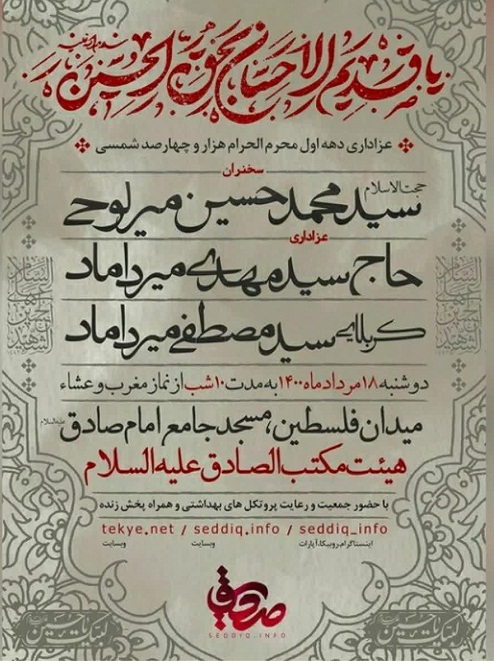 یا قدیم الاحسان بحق الحسین
عزاداری دهه اول محرم الحرام هزار و چهارصد شمسی
سخنران
حجت الاسلام
سید محمد حسین میرلوحی
عزاداری
حاج سید مهدی میرداماد
کربلایی سید مصطفی میرداماد
دوشنبه ۱۸ مرداد ماه ۱۴۰۰ به مدت ۱۰ شب از نماز مغرب و عشاء
میدان فلسطین، مسجد جامع امام صادق علیه السلام
هیئت مکتب الصادق علیه السلام
با حضور جمعیت و رعایت پروتکل های بهداشتی و همراه پخش زنده
tekye.net / seddiq.info / seddiq_info
وبسایت وبسایت اینستاگرام،روبیکا،آپارات
SEDDYQ.INFO